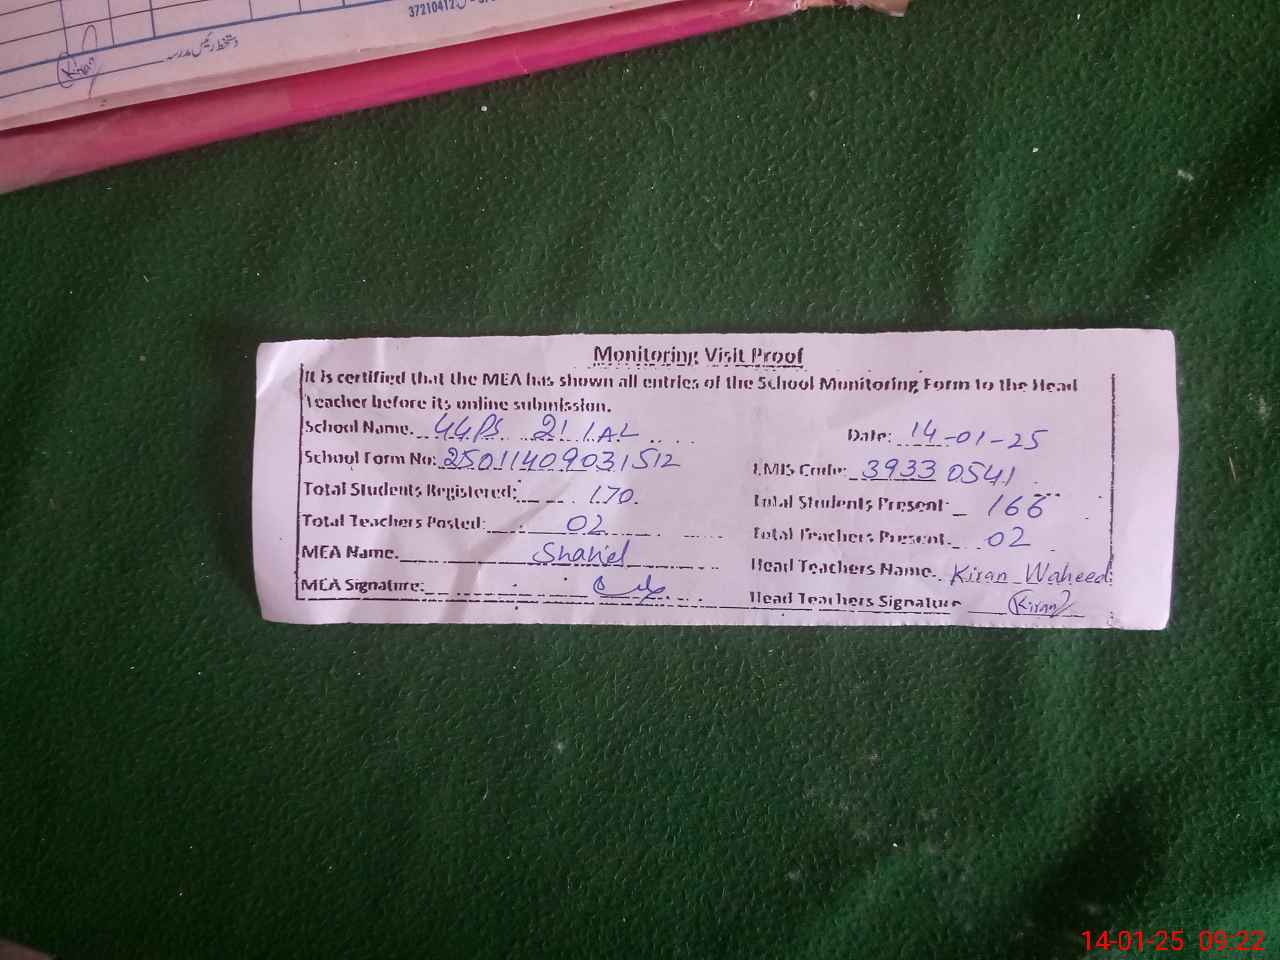 37210412
دستخط رئیس مدرسہ
Kiran
Monitoring Visit Proof
It is certified that the MEA has shown all entries of the School Monitoring Form to the Head
Teacher before its online submission.
School Name. 44PS 21 1AL Date: 14-01-25
School Form No: 25011409031512 EMIS Code: 39330541
Total Students Registered: 170 Total Students Present 166
Total Teachers Posted: 02 Total Teachers Present. 02
MEA Name. Shakel Head Teachers Name.. Kiran Waheed
MEA Signature: Head Teachers Signature Kiran
14-01-25 09:22